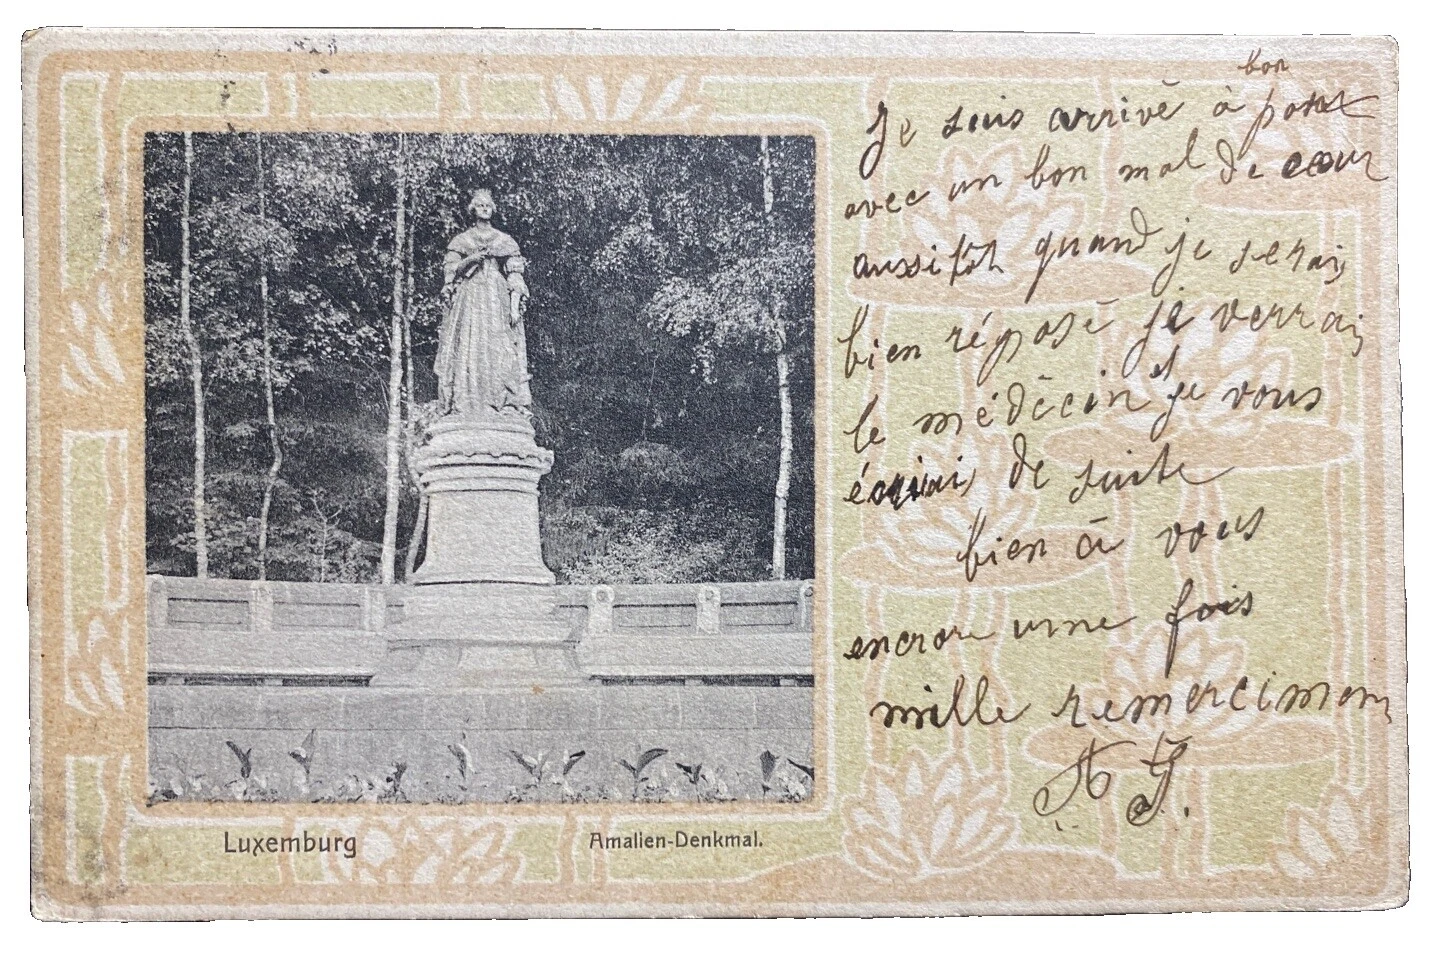 bon
Je suis arrivé à port
avec un bon mal de cœur
aussitôt quand je serai
bien réposé je verrai
le médècin et je vous
écrirai de suite
bien à vous
encrore une fois
mille remercimen
Luxemburg
Amalien-Denkmal.